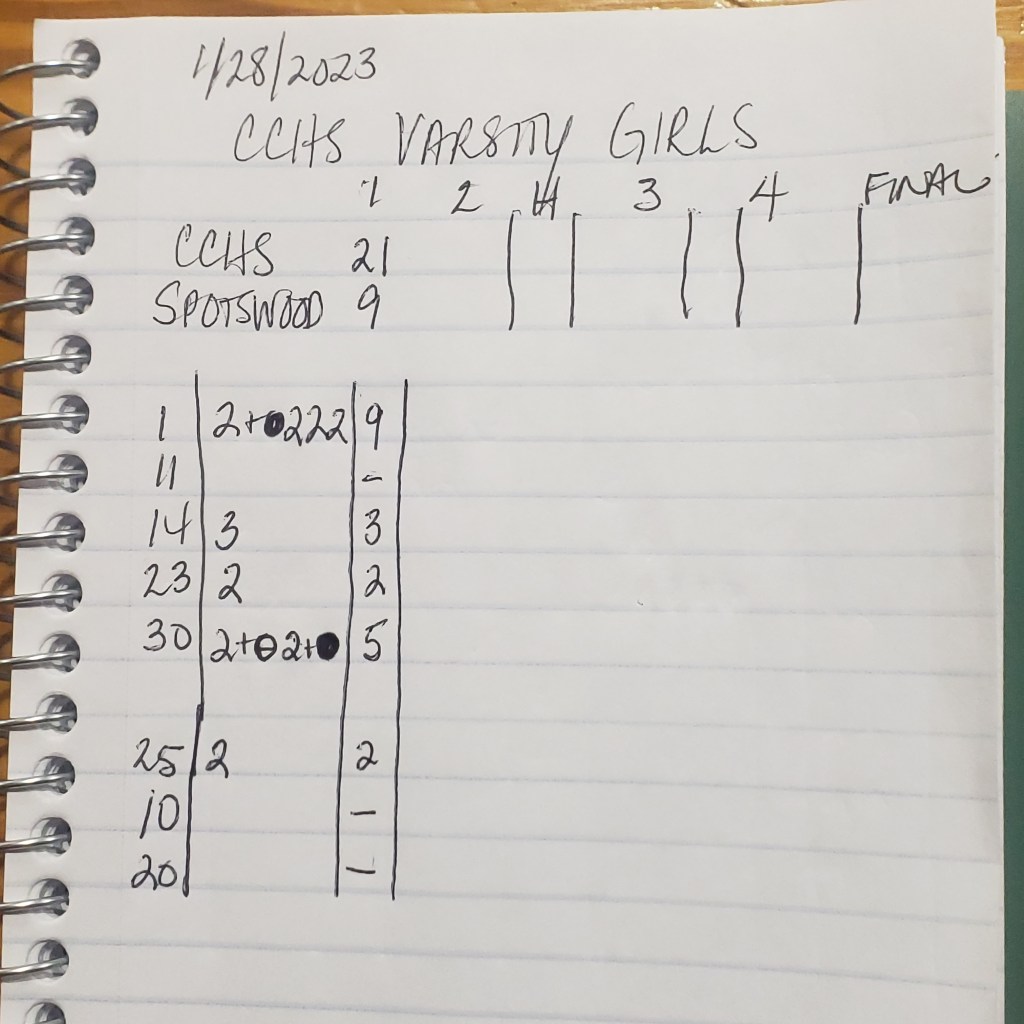 1/28/2023
CCHS VARSITY GIRLS
1 2 H 3 4 FINAL
CCHS 21
SPOTSWOOD 9
1 2+●222 9
11 -
14 3 3
23 2 2
30 2+⊖2+● 5
25 2 2
10 -
20 -